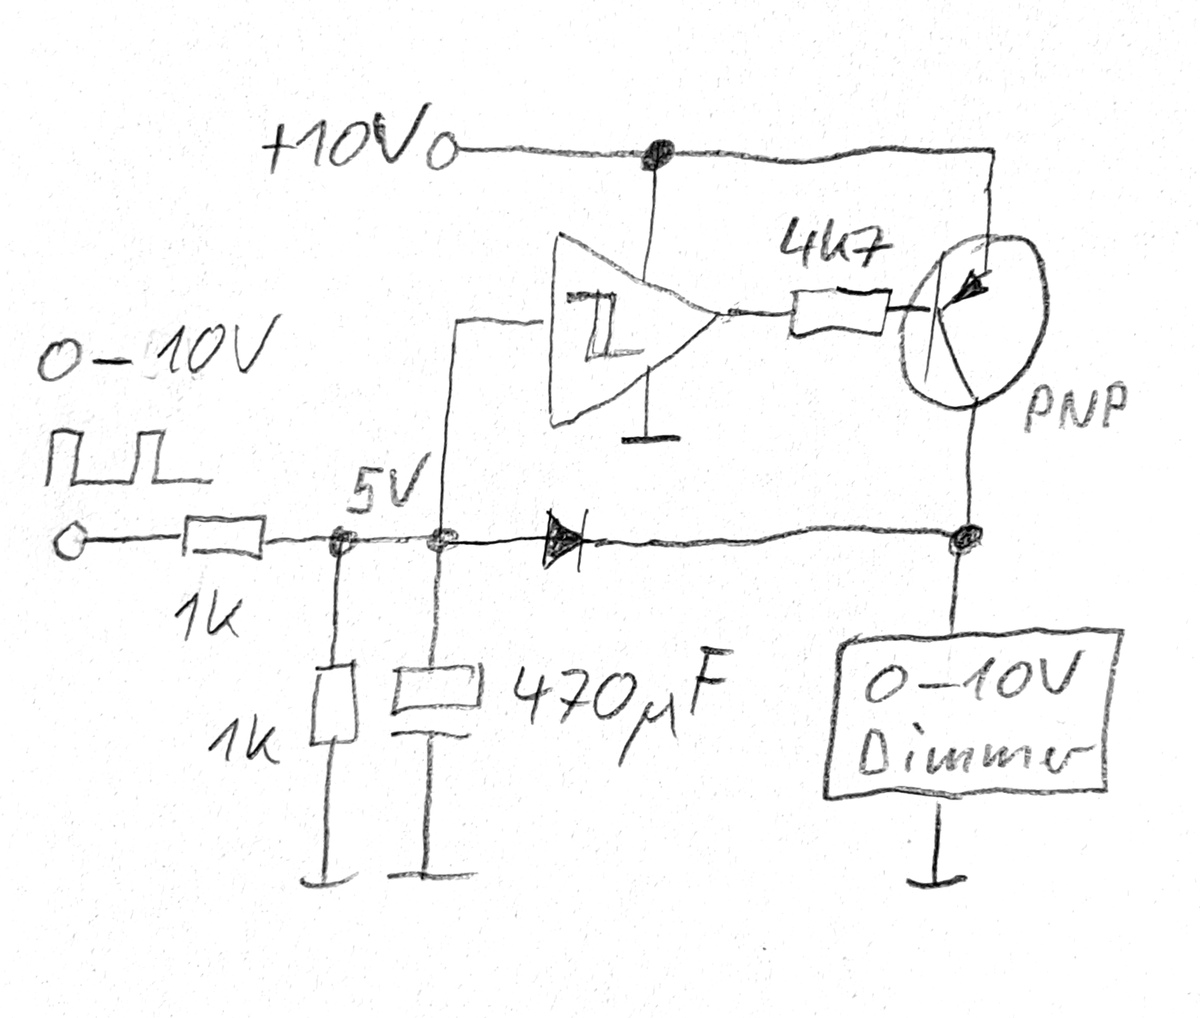 +10V
4k7
0-10V
PNP
5V
1k
470µF
1k
0-10V
Dimmer